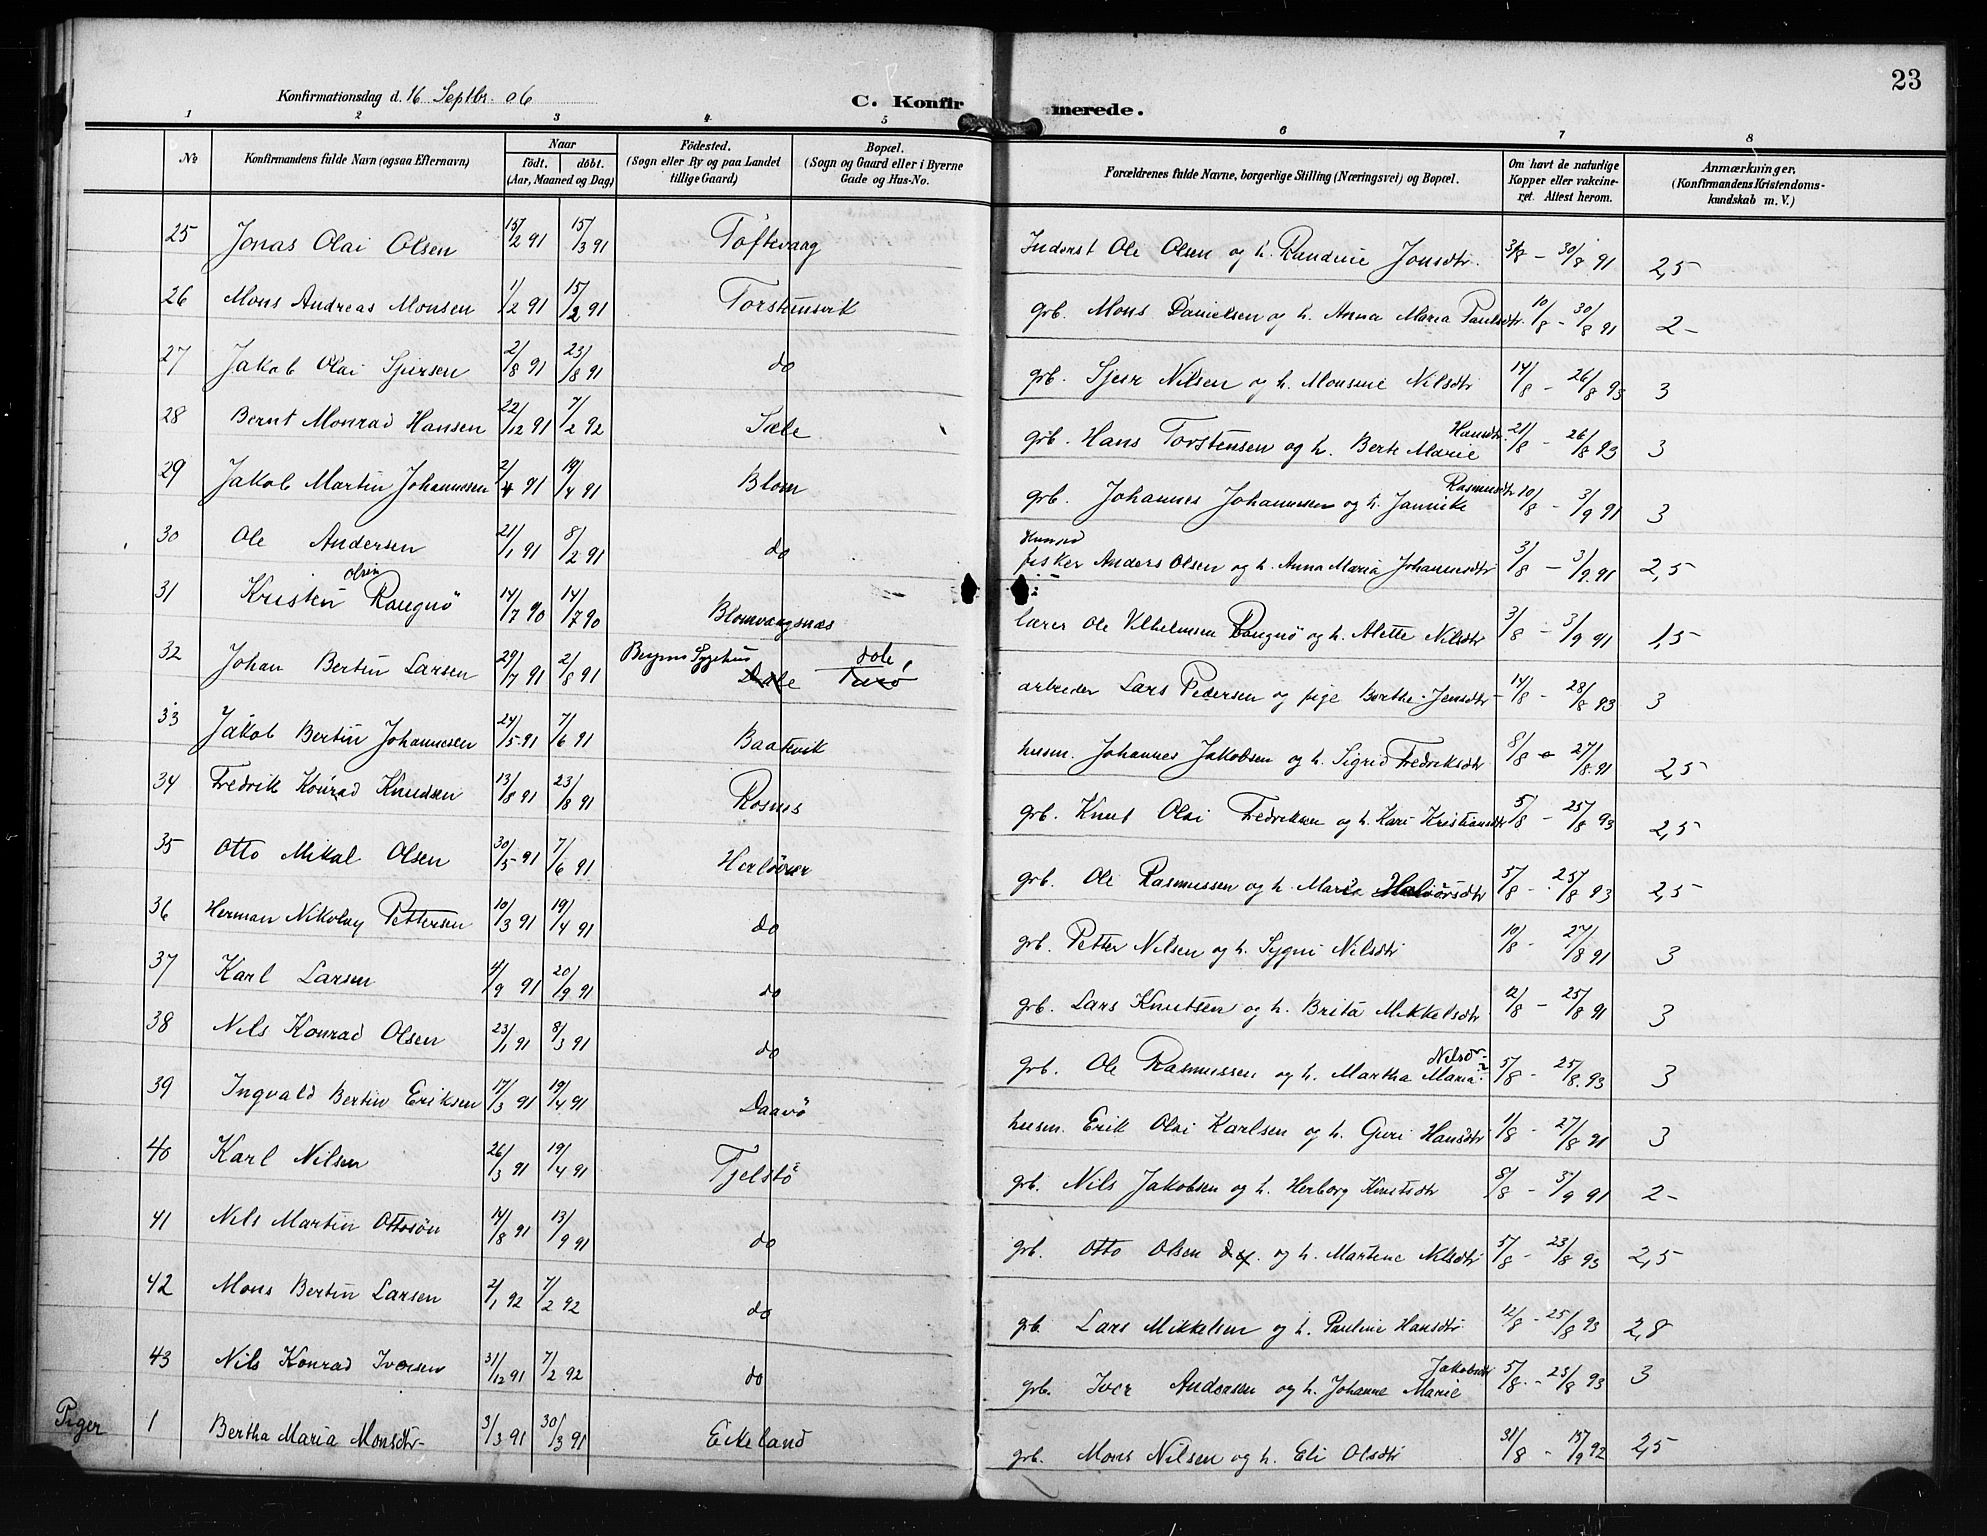 23
Konfirmationsdag d. 16 Septbr. 06
C. Konfirmerede.
1 2 3 4 5 6 7 8
No
Konfirmandens fulde Navn (ogsaa Efternavn)
Naar
födt. döbt.
(Aar, Maaned og Dag)
Födested.
(Sogn eller By og paa Landet
tillige Gaard)
Bopæl.
(Sogn og Gaard eller i Byerne
Gade og Hus-No.
Forældrenes fulde Navne, borgerlige Stilling (Næringsvei) og Bopæl.
Om havt de naturlige
Kopper eller vakcine-
ret. Attest herom.
Anmærkninger.
(Konfirmandens Kristendoms-
kundskab m. V.)
25 Jonas Olai Olsen 15/2 91 15/3 91 Toftevaag Inderst Ole Olsen og h. Randine Jonsdtr. 3/8 – 30/8 91 2,5
26 Mons Andreas Monsen 1/2 91 15/2 91 Torstensvik grb. Mons Danielsen og h. Anna Maria Paulsdtr. 10/8 – 30/8 91 2–
27 Jakob Olai Sjursen 2/8 91 23/8 91 do grb. Sjur Nilsen og h. Monsine Nilsdtr 14/8 – 26/8 93 3
28 Bernt Monrad Hansen 22/12 91 7/2 92 Sæle grb. Hans Torstensen og h. Berte Marie Hansdtr. 21/8 – 26/8 93 3
29 Jakob Martin Johannessen 2/4 91 19/4 91 Blom grb. Johannes Johannessen og h. Jannike Rasmusdtr 10/8 – 3/9 91 3
30 Ole Andersen 21/1 91 8/2 91 do fisker Anders Olsen og h. Anna Maria Johannesdtr 3/8 – 3/9 91 2,5
31 Kristen Olsen Rongnö 14/7 90 14/7 90 Blomvaagsnæs lærer Ole Vilhelmsen Rongnö og h. Alette Nilsdtr 3/8 – 3/9 91 1,5
32 Johan Bertin Larsen 29/7 91 2/8 91 Bergens Sygehus Dale dole arbeider Lars Pedersen og pige Berthe Jensdtr 14/8 – 28/8 93 3
33 Jakob Bertin Johannesen 24/5 91 7/6 91 Baatevik husm. Johannes Jakobsen og h. Sigrid Fredriksdtr 8/8 – 27/8 91 2,5
34 Fredrik Konrad Knudsen 13/8 91 23/8 91 Rosnes grb. Knut Olai Fedriksen og h. Kari Kristiansdtr 5/8 – 25/8 93 2,5
35 Otto Mikal Olsen 30/5 91 7/6 91 Herlövær grb. Ole Rasmussen og h. Maria Halvorsdtr 5/8 – 25/8 93 2,5
36 Herman Nikolay Pettersen 10/3 91 19/4 91 do grb. Petter Nilsen og h. Sygni Nilsdtr 19/8 – 27/8 91 3
37 Karl Larsen 4/9 91 20/9 91 do grb. Lars Knutsen og h. Brita Mikkelsdtr 12/8 – 25/8 91 3
38 Nils Konrad Olsen 23/1 91 8/3 91 do grb. Ole Rasmussen og h. Martha Maria Nilsdr 5/8 – 25/8 93 3
39 Ingvald Bertin Eriksen 17/3 91 19/4 91 Daavö husm. Erik Olai Karlsen og h. Guri Hansdtr 1/8 – 27/8 91 3
40 Karl Nilsen 26/3 91 19/4 91 Tjelstö grb. Nils Jakobsen og h. Herborg Knutsdtr 8/8 – 3/9 91 2–
41 Nils Martin Ottosön 14/8 91 13/9 91 do grb. Otto Olsen og h. Martine Nilsdtr 5/8 – 23/8 93 2,5
42 Mons Bertin Larsen 2/1 92 7/2 92 do grb. Lars Mikkelsen og h. Pauline Hansdtr 12/8 – 25/8 93 2,8
43 Nils Konrad Iversen 31/12 91 7/2 92 do grb. Iver Andersen og h. Johanne Marie Jakobsdtr 5/8 – 25/8 93 3
Piger 1 Bertha Maria Monsdtr 3/3 91 30/3 91 Eikeland grb. Mons Nilsen og h. Eli Olsdtr 31/8 – 15/9 92 2,5